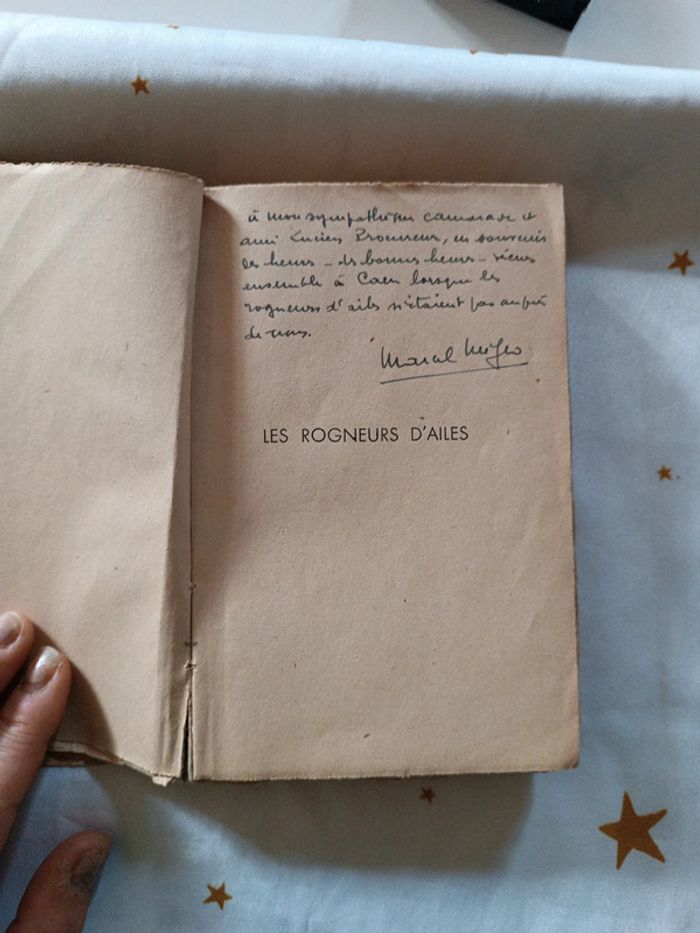 à mon sympathique camarade et
ami Lucien en souvenir
des heures – des bonnes heures – vécues
ensemble à Caen lorsque les
rogneurs d'ailes n'étaient pas auprès
de nous.
Marcel Migeo
LES ROGNEURS D'AILES